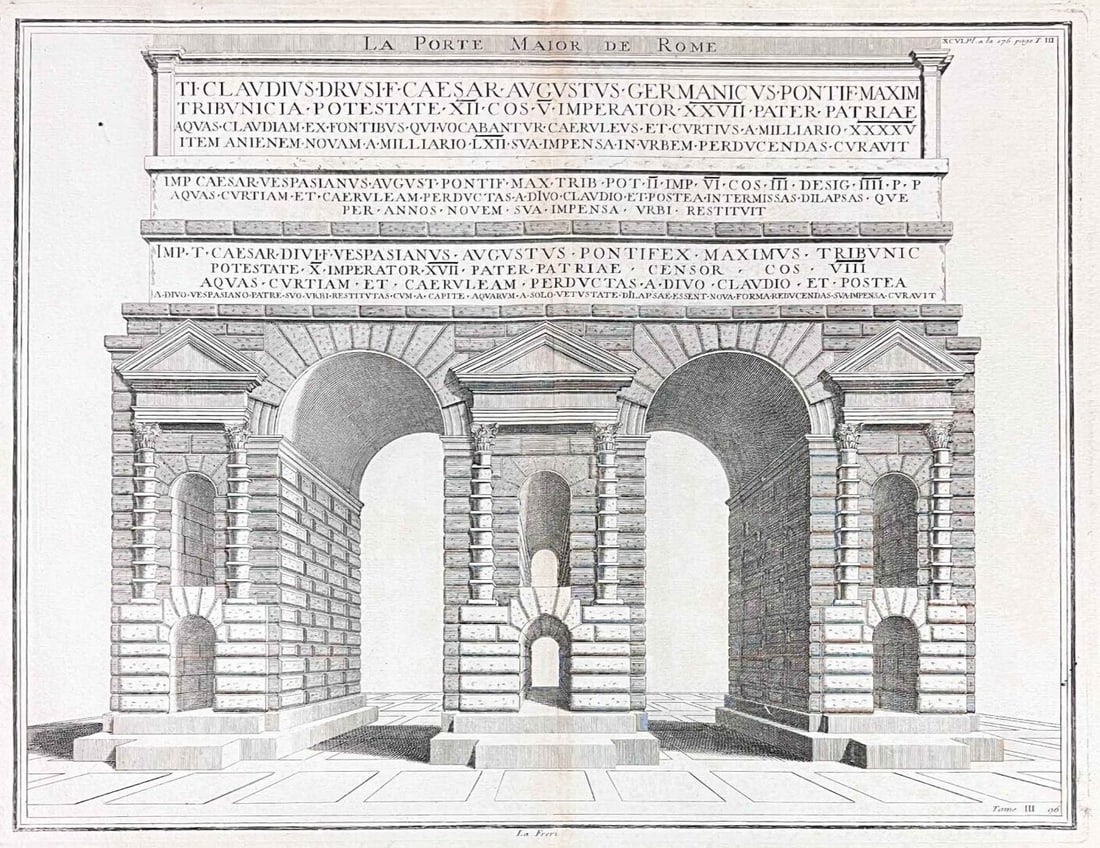 LA PORTE MAIOR DE ROME
XCVI. Pl. a la 176 page T. III
TI·CLAVDIVS·DRVSI·F·CAESAR·AVGVSTVS·GERMANICVS·PONTIF·MAXIM
TRIBVNICIA·POTESTATE·X̅I̅I̅·COS·V̅·IMPERATOR·X̅X̅V̅I̅I̅·PATER·PATRIAE
AQVAS·CLAVDIAM·EX·FONTIBVS·QVI·VOCABANTVR·CAERVLEVS·ET·CVRTIVS·A·MILLIARIO·X̅X̅X̅X̅V̅
ITEM ANIENEM·NOVAM·A·MILLIARIO·L̅X̅I̅I̅·SVA·IMPENSA·IN·VRBEM·PERDVCENDAS·CVRAVIT
IMP CAESAR·VESPASIANVS·AVGVST·PONTIF·MAX·TRIB·POT·I̅I̅·IMP·V̅I̅·COS·I̅I̅I̅·DESIG·I̅I̅I̅I̅·P·P
AQVAS·CVRTIAM·ET·CAERVLEAM·PERDVCTAS·A·DIVO·CLAVDIO·ET·POSTEA·INTERMISSAS·DILAPSAS·QVE
PER·ANNOS·NOVEM·SVA·IMPENSA·VRBI·RESTITVIT
IMP·T·CAESAR·DIVI·F·VESPASIANVS·AVGVSTVS·PONTIFEX·MAXIMVS·TRIBVNIC
POTESTATE·X̅·IMPERATOR·X̅V̅I̅I̅·PATER·PATRIAE·CENSOR·COS·V̅I̅I̅I̅
AQVAS·CVRTIAM·ET·CAERVLEAM·PERDVCTAS·A·DIVO·CLAVDIO·ET·POSTEA
A·DIVO·VESPASIANO·PATRE·SVO·VRBI·RESTITVTAS·CVM·A·CAPITE·AQVARVM·A·SOLO·VETVSTATE·DILAPSAE·ESSENT·NOVA·FORMA·REDVCENDAS·SVA·IMPENSA·CVRAVIT
Tome III 96
La Freri